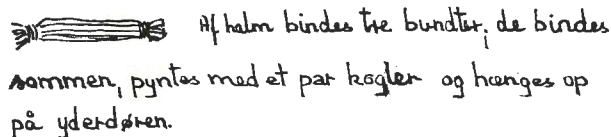 Af halm bindes tre bundter; de bindes
sammen, pyntes med et par kogler og hænges op
på yderdøren.